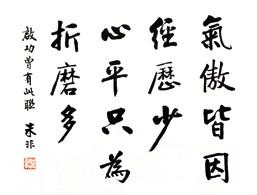 氣傲皆因
經歷少
心平只為
折磨多
啟功曾有此聯 朱非